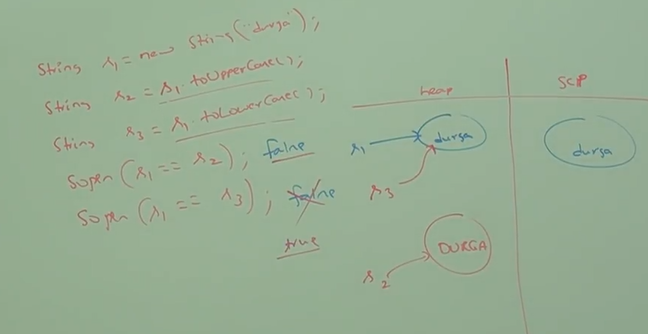 String s1 = new String("durga");
String s2 = s1.toUpperCase();
String s3 = s1.toLowerCase();
Sopln(s1 == s2); false
Sopln(s1 == s3); false
true
heap
SCP
s1
durga
durga
s3
DURGA
s2